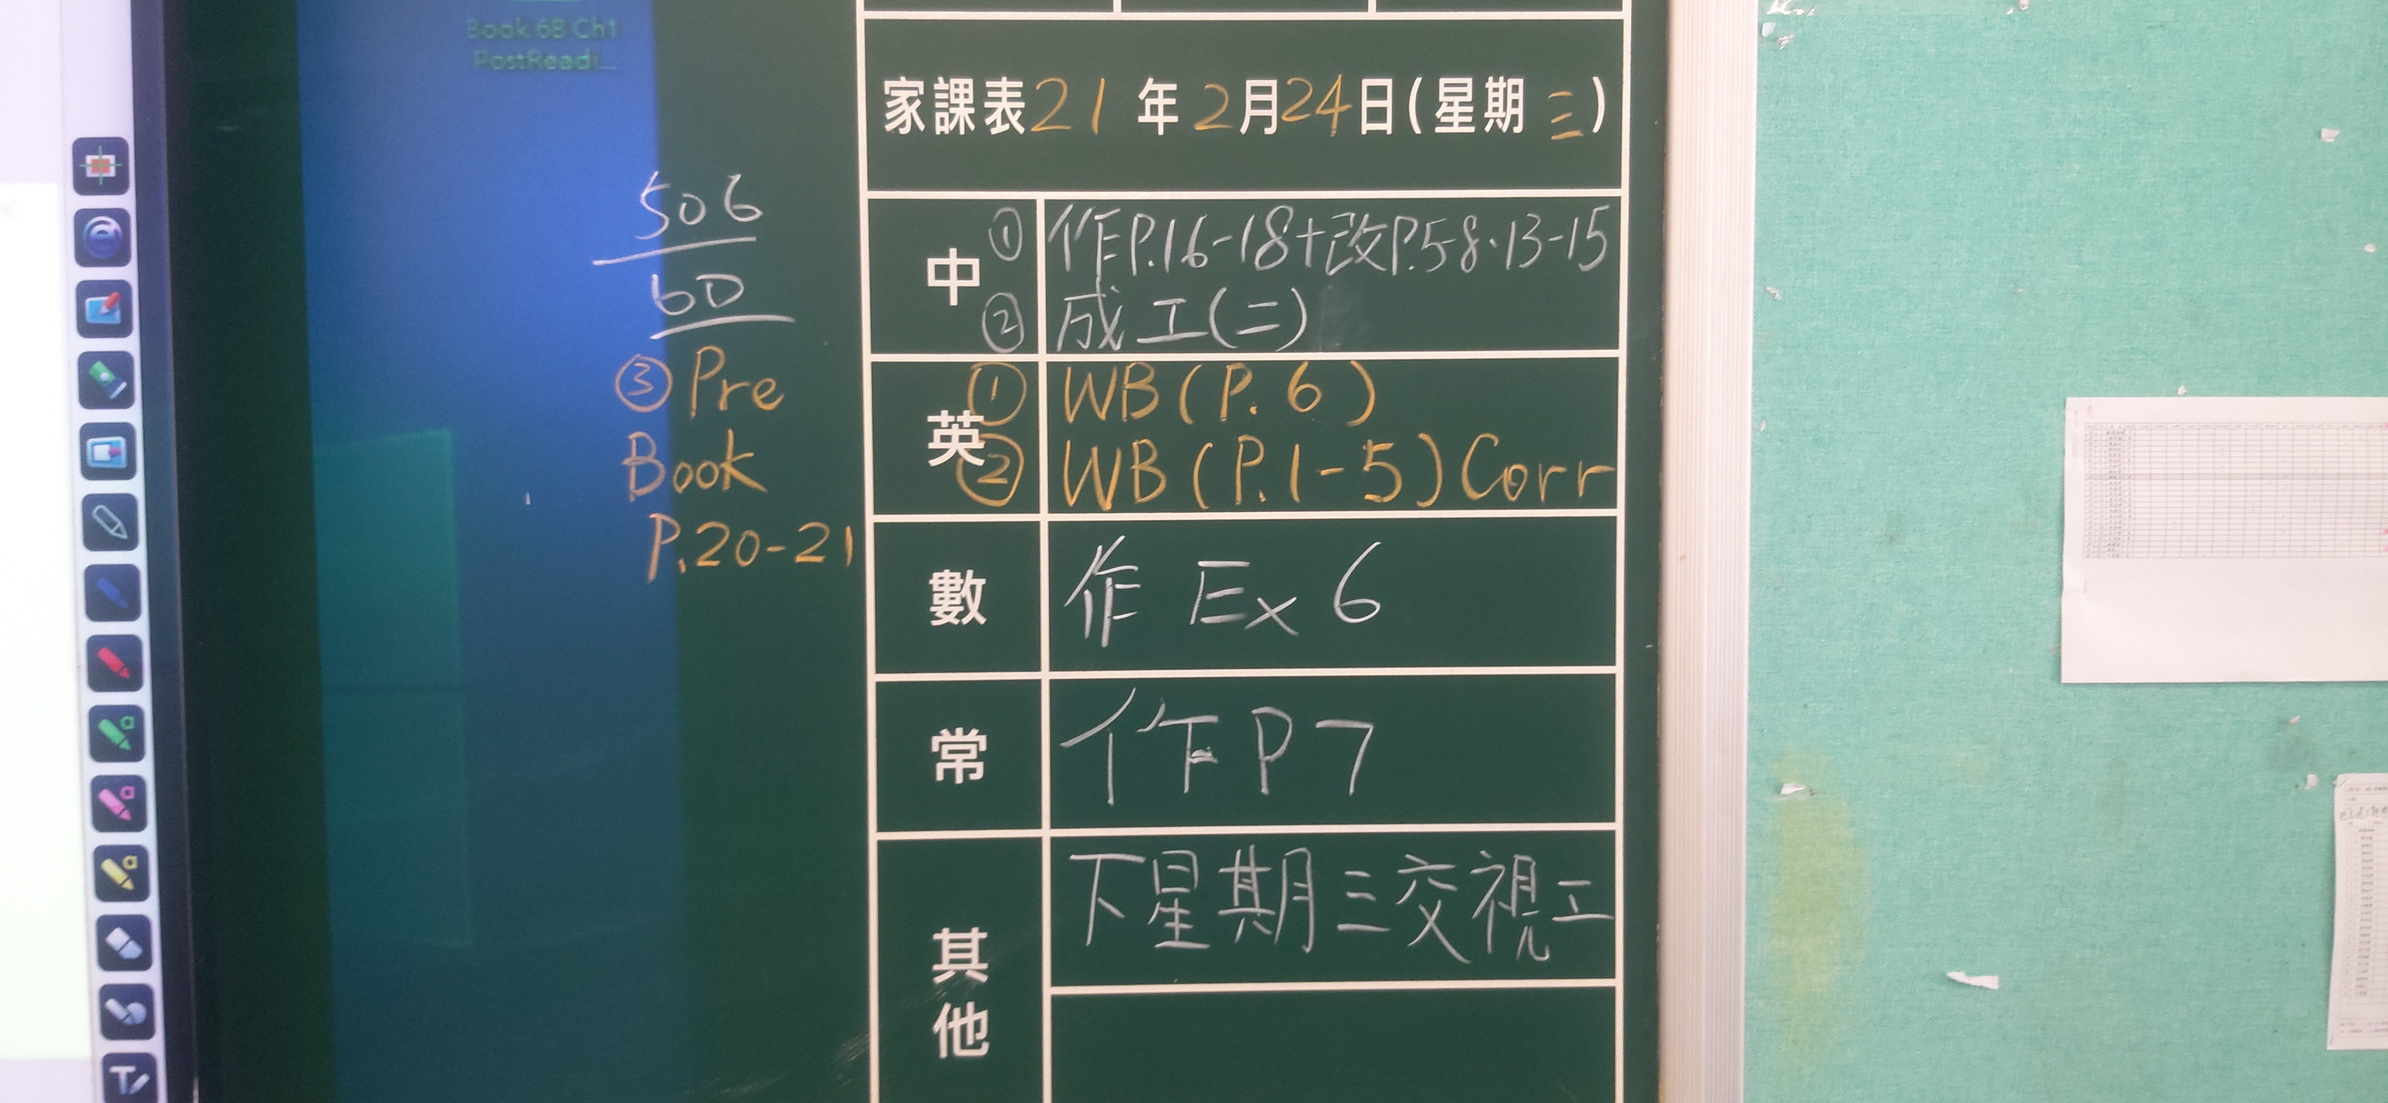 Book 6B Ch1
PostReadi...
家課表21年2月24日(星期三)
506
60
中
① 作P.16-18+改P.5-8.13-15
② 成工(二)
英
① WB(P.6)
② WB(P.1-5)Corr
③ Pre
Book
P.20-21
數
作 Ex 6
常
作P7
其他
下星期三交視工